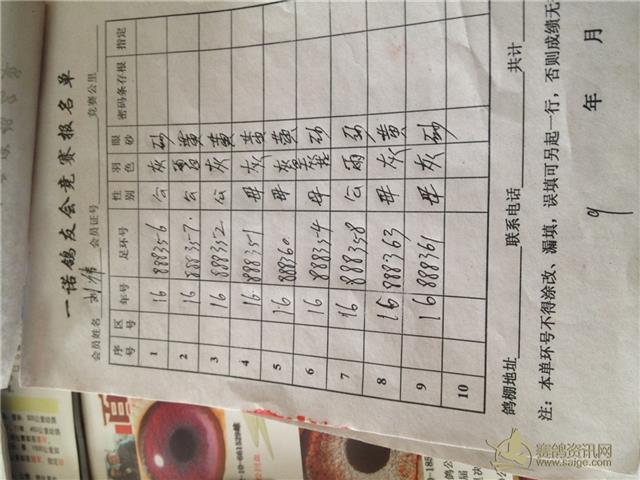 一诺鸽友会竞赛报名单
会员姓名 会员证号 竞赛公里
序号 区号 年号 足环号 性别 羽色 眼砂 密码条存根 指定
1 16 888356 公 灰 砂
2 16 888357 公 黄
3 16 888352 公 灰 黄
4 16 888351 母 灰 黄
5 16 888360 母 灰 黄
6 16 888354 母 砂
7 16 888358 公 雨
8 16 888363 母 灰 黄
9 16 888361 母 灰 砂
10
鸽棚地址 联系电话 共计
注：本单环号不得涂改、漏填，误填可另起一行，否则成绩无
年 9 月
赛鸽资讯网
www.saige.com